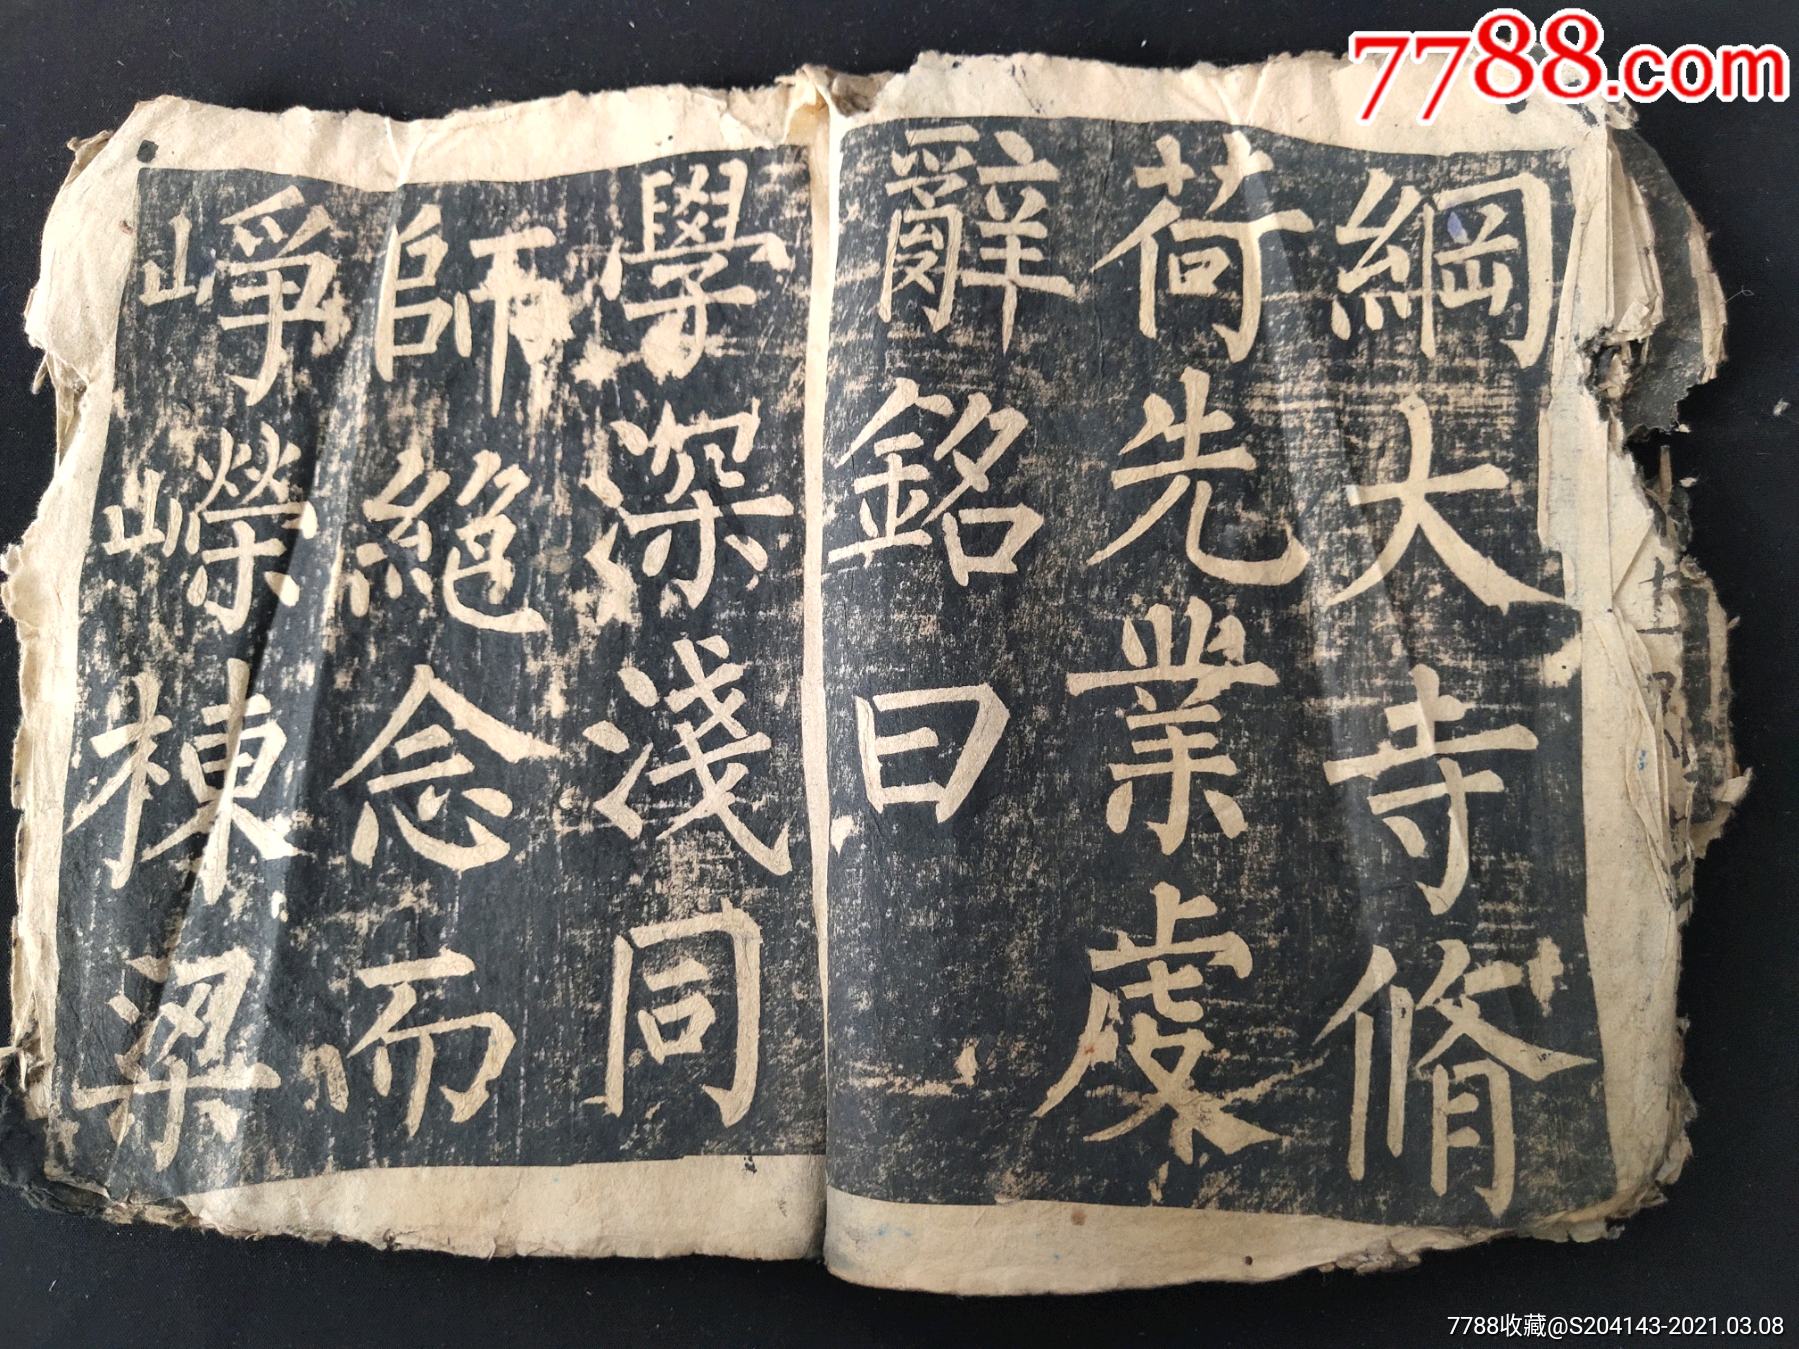 綱大寺脩
荷先業虔
辭銘曰
學深淺同
師絕念而
崢嶸棟梁
7788.com
7788收藏@S204143-2021.03.08